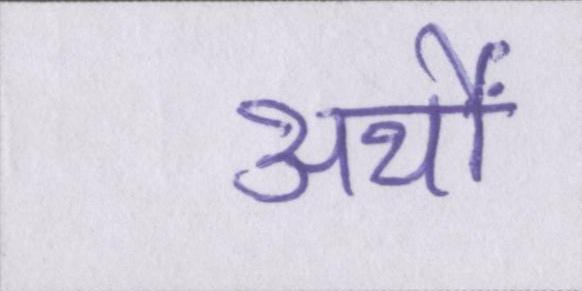 अर्थों